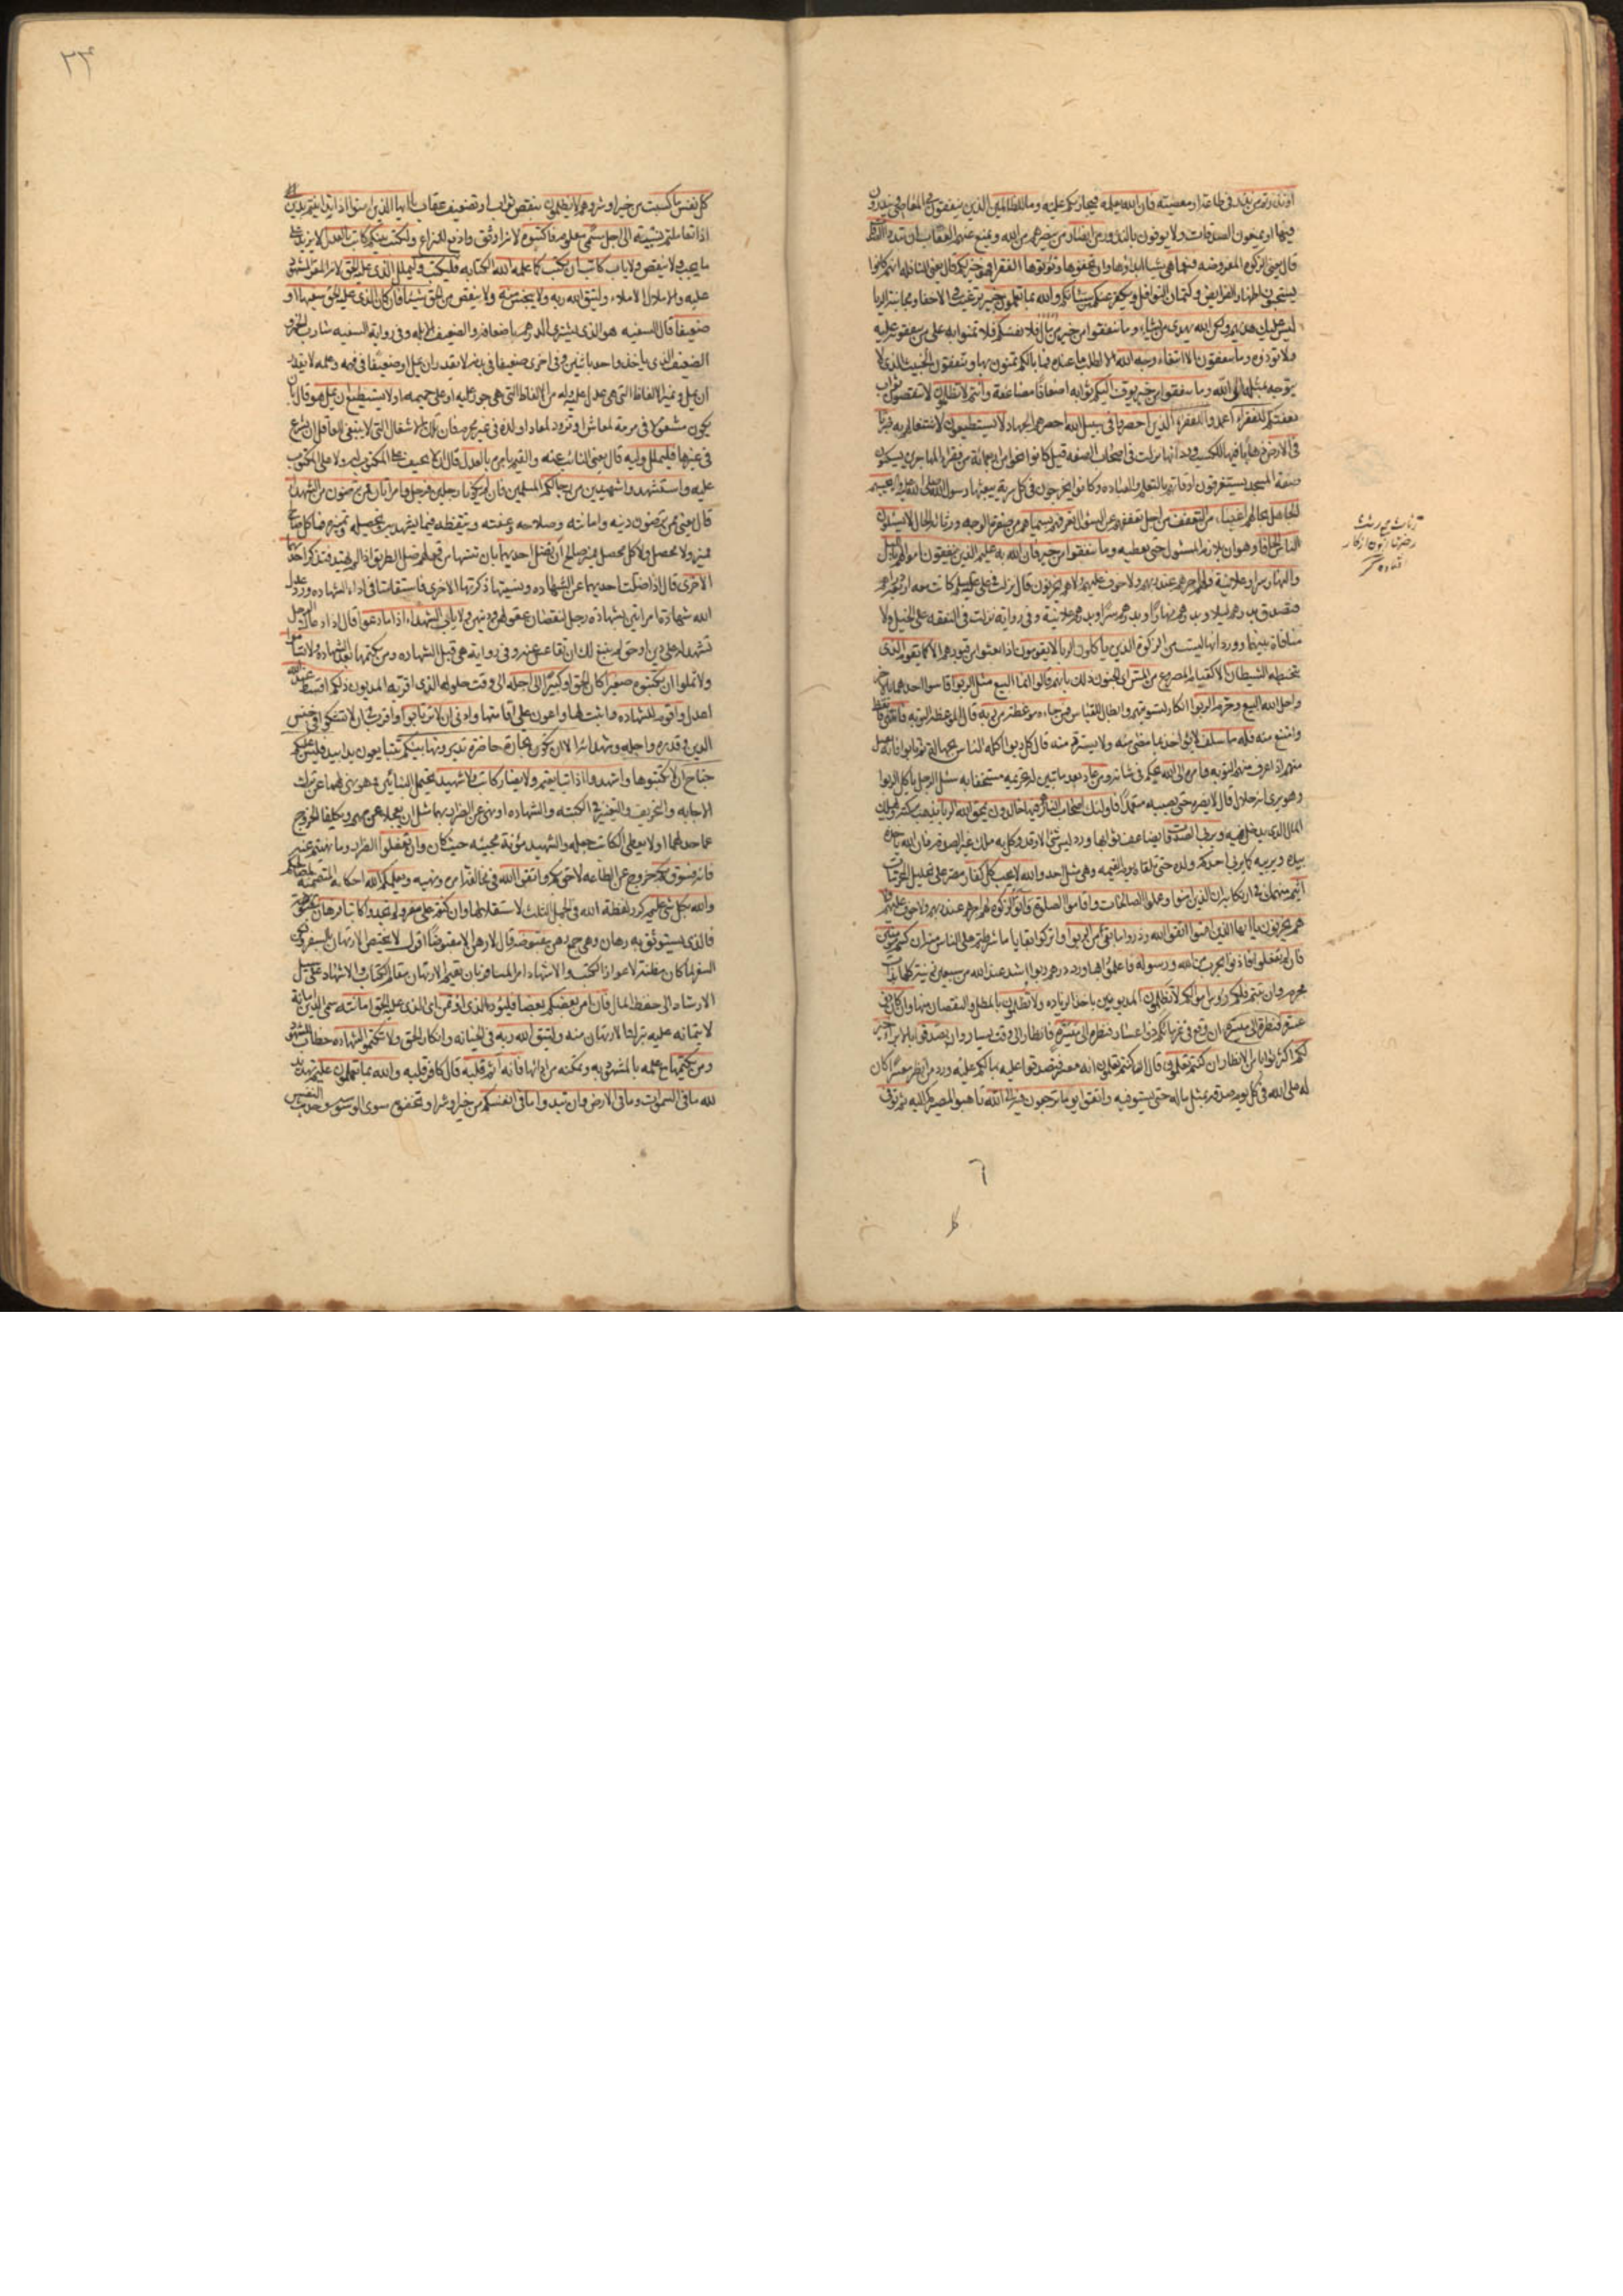 او نذرتم من نذر في طاعة او معصية فان الله يعلمه فيجازيكم عليه وما للظالمين الذين ينفقون في المعاصي وينذرون
فيها او يمنعون الصدقات ولا يوفون بالنذور من انصار من ينصرهم من الله ويمنع عنهم العقاب ان تبدوا الصدقات
قال يعني الزكوة المفروضة فنعما هي شيئا ابداؤها وان تخفوها وتؤتوها الفقراء فهو خير لكم قال يعني النافلة انهم كانوا
يستحبون اظهار الفرايض وكتمان النوافل ويكفر عنكم من سيئاتكم والله بما تعملون خبير ترغيب في الاخفا ومجانبة الريا
ليس عليك هديهم ولكن الله يهدي من يشاء وما تنفقوا من خير من مال فلانفسكم فلا تمنوا به على من تنفقونه عليه
ولا تؤذوه وما تنفقون الا ابتغاء وجه الله الا لطلب ما عنده فما بالكم تمنون بها وتنفقون الخبيث الذي لا
يتوجه بمثله الى الله وما تنفقوا من خير يوف اليكم ثوابه اضعافا مضاعفة وانتم لا تظلمون لا تنقصون ثواب
نفقتكم للفقراء اعمدوا للفقراء الذين احصروا في سبيل الله احصرهم الجهاد لا يستطيعون لاشتغالهم به ضربا
في الارض ذهابا فيها للكسب ورد انها نزلت في اصحاب الصفة قيل كانوا نحوا من اربعمائة من فقراء المهاجرين يسكنون
صفة المسجد يستغرقون اوقاتهم بالتعلم والعبادة وكانوا يخرجون في كل سرية يبعثها رسول الله صلى الله عليه واله يحسبهم
الجاهل بحالهم اغنياء من التعفف من اجل تعففهم عن السؤال تعرفهم بسيماهم من صفرة الوجه ورثاثة الحال لا يسئلون
الناس الحافا وهو ان يلازم المسئول حتى يعطيه وما تنفقوا من خير فان الله به عليم الذين ينفقون اموالهم بالليل
والنهار سرا وعلانية فلهم اجرهم عند ربهم ولا خوف عليهم ولا هم يحزنون قال نزلت في علي عليه السلم كانت معه اربعة دراهم
فتصدق بدرهم ليلا وبدرهم نهارا وبدرهم سرا وبدرهم علانية وفي رواية نزلت في النفقة على الخيل ولا
منافاة بينهما وورد انها ليست من الزكوة الذين ياكلون الربا لا يقومون اذا بعثوا من قبورهم الا كما يقوم الذي
يتخبطه الشيطان الا كقيام المصروع من المس اي الجنون ذلك بانهم قالوا انما البيع مثل الربوا قاسوا احدهما بالاخر
واحل الله البيع وحرم الربوا انكار لتسويتهم وابطال للقياس فمن جاءه موعظة من ربه قال الموعظة التوبة فانتهى فاتعظ
وامتنع منه فله ما سلف لا يؤاخذ بما مضى منه ولا يسترد منه قال كل ربوا اكله الناس بجهالة ثم تابوا فانه يقبل
منهم اذا عرف منهم التوبة وامره الى الله يحكم في شانه ومن عاد بعد ما تبين له تحريمه مستخفا به سئل الرجل ياكل الربوا
وهو يرى انه حلال قال لا يضره حتى يصيبه متعمدا فاولئك اصحاب النار هم فيها خالدون يمحق الله الربا يذهب ببركته ويهلك
المال الذي يدخل فيه ويربي الصدقات يضاعف ثوابها ورد ليس شئ الا وقد وكل به ملك غير الصدقة فان الله ياخذه
بيده ويربيه كما يربي احدكم ولده حتى تلقاه يوم القيمة وهي مثل احد والله لا يحب كل كفار مصر على تحليل المحرمات
اثيم منهمك في ارتكابه ان الذين امنوا وعملوا الصالحات واقاموا الصلوة واتوا الزكوة لهم اجرهم عند ربهم ولا خوف عليهم ولا
هم يحزنون يا ايها الذين امنوا اتقوا الله وذروا ما بقي من الربوا واتركوا بقايا ما شرطتم على الناس منه ان كنتم مؤمنين
فان لم تفعلوا فاذنوا بحرب من الله ورسوله فاعلموا بها ورد درهم ربوا اشد عند الله من سبعين زنية كلها بذات
محرم وان تبتم فلكم رؤس اموالكم لا تظلمون المديونين باخذ الزيادة ولا تظلمون بالمطل والنقصان منها وان كان ذو
عسرة فنظرة الى ميسرة ان وقع في غرمائكم ذو اعسار فنظرة الى ميسرة فانظار الى وقت يسار وان تصدقوا بالابراء خير
لكم اكثر ثوابا من الانظار ان كنتم تعلمون قال ان كنتم تعلمون انه معسر فتصدقوا عليه بمالكم عليه ورد من انظر معسرا كان
له على الله في كل يوم صدقة بمثل ماله حتى يستوفيه واتقوا يوما ترجعون فيه الى الله تاهبوا لمصيركم اليه ثم توفى
٣٣
كل نفس ما كسبت من خير او شر وهم لا يظلمون بنقص ثواب او تضعيف عقاب يا ايها الذين امنوا اذا تداينتم بدين
اذا تعاملتم نسيئة الى اجل مسمى معلوم فاكتبوه لانه اوثق وادفع للنزاع وليكتب بينكم كاتب بالعدل لا يزيد على
ما يجب ولا ينقص ولا ياب كاتب ان يكتب كما علمه الله الكتابة فليكتب وليملل الذي عليه الحق لانه المقر المشهود
عليه والاملال الاملاء وليتق الله ربه ولا يبخس منه ولا ينقص من الحق شيئا فان كان الذي عليه الحق سفيها او
ضعيفا قال السفيه هو الذي يشتري الدرهم باضعافه والضعيف الابله وفي رواية السفيه شارب الخمر و
الضعيف الذي ياخذ واحدا باثنين وفي اخرى ضعيفا في بدنه لا يقدر ان يمل او ضعيفا في فهمه وعلمه لا يقدر
ان يمل ويميز الالفاظ التي هي عدل عليه وله من الالفاظ التي هي جور عليه او على حميمه او لا يستطيع ان يمل هو قال بان
يكون مشغولا في مرمة لمعاش او تزود لمعاد او لذة في غير محرم فان تلك الاشغال التي لا ينبغي للعاقل ان يشرع
في غيرها فليملل وليه قال يعني النائب عنه والقيم بامره بالعدل قال ان لا يحيف على المكتوب له ولا على المكتوب
عليه واستشهدوا شهيدين من رجالكم المسلمين فان لم يكونا رجلين فرجل وامراتان ممن ترضون من الشهداء
قال يعني ممن ترضون دينه وامانته وصلاحه وعفته وتيقظه فيما يشهد به وتحصيله وتمييزه فما كل صالح
مميز ولا محصل ولا كل محصل مميز صالح ان تضل احديهما بان تنسها من قولهم ضل الطريق اذا لم يهتد فتذكر احديهما
الاخرى قال اذا ضلت احديهما عن الشهادة ونسيتها ذكرتها الاخرى فاستقامتا في اداء الشهادة وعدل
الله شهادة امراتين بشهادة رجل لنقصان عقولهن ودينهن ولا ياب الشهداء اذا ما دعوا قال اذا دعاك الرجل
تشهد له على دين او حق لم ينبغ لك ان تقاعس عنه وفي رواية هي قبل الشهادة ومن يكتمها بعد الشهادة ولا تساموا
ولا تملوا ان تكتبوه صغيرا كان الحق او كبيرا الى اجله الى وقت حلوله الذي اقر به المديون ذلكم اقسط عند الله
اعدل واقوم للشهادة واثبت لها واعون على اقامتها وادنى ان لا ترتابوا واقرب في ان لا تشكوا في جنس
الدين وقدره واجله وشهدائه الا ان تكون تجارة حاضرة تديرونها بينكم تتبايعون يدا بيد فليس عليكم
جناح ان لا تكتبوها واشهدوا اذا تبايعتم ولا يضار كاتب ولا شهيد يحتمل البنائين وهو نهي لهما عن ترك
الاجابة والتحريف والتغيير في الكتبة والشهادة او نهي عن الضرار بهما مثل ان يعجلا عن مهم ويكلفا الخروج
عما حد لهما او لا يعطى الكاتب جعله والشهيد مؤنة مجيئه حيث كان وان تفعلوا الضرار وما نهيتم عنه
فانه فسوق بكم خروج عن الطاعة لاحق بكم واتقوا الله في مخالفة امره ونهيه ويعلمكم الله احكامه المتضمنة لمصالحكم
والله بكل شئ عليم كرر لفظة الله في الجمل الثلث لاستقلالها وان كنتم على سفر ولم تجدوا كاتبا فرهان مقبوضة
فالذي يستوثق به رهان وهي جمع رهن مقبوضة قال لا رهن الا مقبوضا اقول لا يختص الارتهان بالسفر ولكن
السفر لما كان مظنة لاعواز الكتب والاشهاد امر المسافر بان يقيم الارتهان مقام الكتاب والاشهاد على سبيل
الارشاد الى حفظ المال فان امن بعضكم بعضا فليؤد الذي اؤتمن اي الذي عليه الحق امانته سمى الدين امانة
لائتمانه عليه بترك الارتهان منه وليتق الله ربه في الخيانة وانكار الحق ولا تكتموا الشهادة خطاب للشهود
ومن يكتمها مع علمه بالمشهود به وتمكنه من ادائها فانه اثم قلبه قال كافر قلبه والله بما تعملون عليم تهديد
لله ما في السموات وما في الارض وان تبدوا ما في انفسكم من خير او شر او تخفوه سوى الوسوسة وحديث النفس